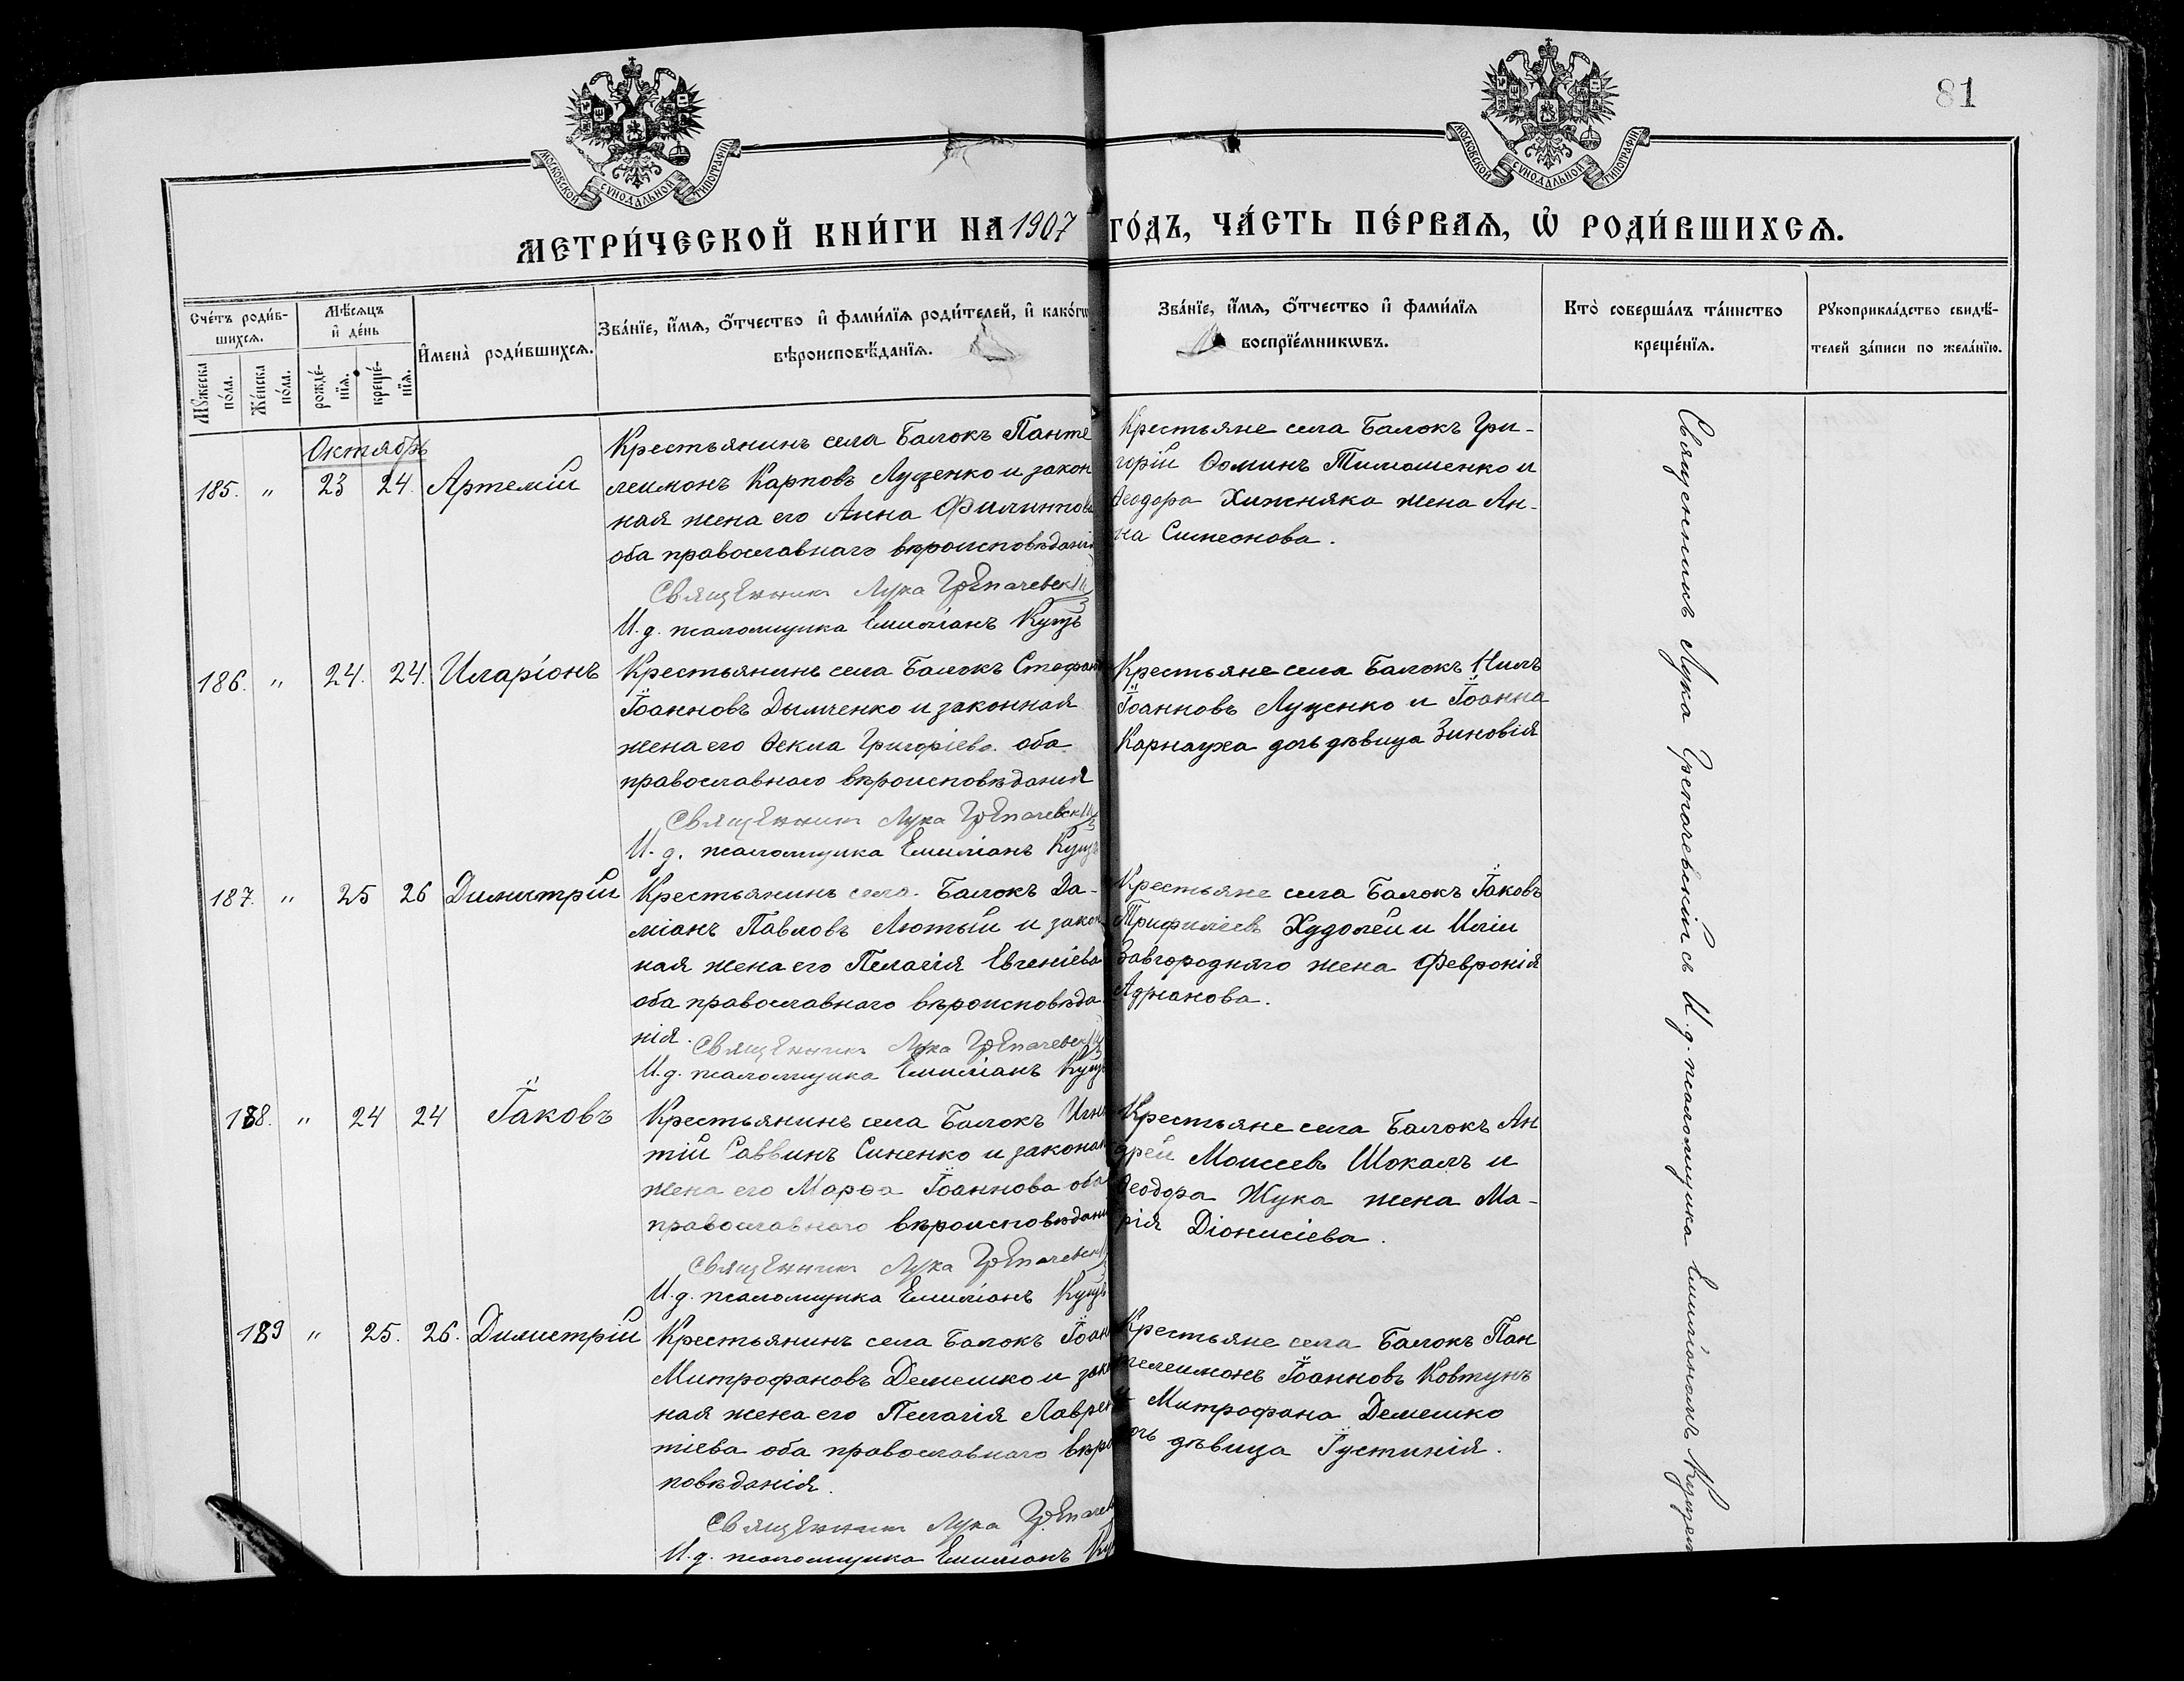 81
МОСКОВСКОЙ СѴНОДАЛЬНОЙ ТИПОГРАФІИ
МОСКОВСКОЙ СѴНОДАЛЬНОЙ ТИПОГРАФІИ
МЕТРИ́ЧЕСКОЙ КНИ́ГИ НА 1907 ГО́ДЪ, ЧА́СТЬ ПЕ́РВАѦ, Ѽ РОДИ́ВШИХСѦ.
Сче́тъ роди́в-
шихсѧ.
Мꙋ́жеска по́ла.
Же́нска по́ла.
Мѣ́сѧцъ
и҆ де́нь
рожде́-
нїѧ.
креще́-
нїѧ.
И҆мена̀ роди́вшихсѧ.
Зва́нїе, и҆́мѧ, ѻ҆́тчество и҆ фами́лїѧ роди́телей, и҆ како́гѡ
вѣроисповѣ́данїѧ.
Зва́нїе, и҆́мѧ, ѻ҆́тчество и҆ фами́лїѧ
воспрїе́мникѡвъ.
Кто̀ соверша́лъ та́инство
креще́нїѧ.
Рꙋкоприкла́дство свидѣ́-
телей за́писи по жела́нїю.
Октябрь
185. " 23 24. Артемій
Крестьянинъ села Балокъ Панте
леимонъ Карповъ Луценко и закон
ная жена его Анна Филиппова
оба православнаго вѣроисповѣданія
Священникъ Лука Грепачевскій
И.д. псаломщика Емиліанъ Кущъ
Крестьяне села Балокъ Гри-
горій Ѳоминъ Тимошенко и
Ѳеодора Хижняка жена Ан-
на Симеонова.
186. " 24. 24. Иларіонъ
Крестьянинъ села Балокъ Стефанъ
Іоанновъ Дымченко и законная
жена его Ѳекла Григоріева оба
православнаго вѣроисповѣданія
Священникъ Лука Грепачевскій
И.д. псаломщика Емиліанъ Кущъ
Крестьяне села Балокъ Нилъ
Іоанновъ Луценко и Іоанна
Карнауха дочь дѣвица Зиновія
187. " 25 26 Димитрій
Крестьянинъ села Балокъ Да-
міанъ Павловъ Лютый и закон
ная жена его Пелагія Евгеніева
оба православнаго вѣроисповѣда-
нія.
Священникъ Лука Грепачевскій
И.д. псаломщика Емиліанъ Кущъ
Крестьяне села Балокъ Іаковъ
Трифиліевъ Худолей и Иліи
Завгородняго жена Февронія
Адріанова.
188. " 24 24 Іаковъ
Крестьянинъ села Балокъ Игна
тій Саввинъ Синенко и законная
жена его Марѳа Іоаннова оба
православнаго вѣроисповѣданія
Священникъ Лука Грепачевскій
И.д. псаломщика Емиліанъ Кущъ
Крестьяне села Балокъ Ан
дрей Моисеевъ Шокалъ и
Ѳеодора Жука жена Ма-
рія Діонисіева.
189 " 25. 26. Димитрій
Крестьянинъ села Балокъ Іоан
Митрофановъ Демешко и зако
ная жена его Пелагія Лаврен
тіева оба православнаго вѣро
повѣданія.
Священникъ Лука Грепачев
И.д. псаломщика Емиліанъ Ку
Крестьяне села Балокъ Пан
телеимонъ Іоанновъ Ковтунъ
и Митрофана Демешко
дочь дѣвица Іустинія.
Священникъ Лука Грепачевскій съ И.д. псаломщика Емиліаномъ Кущемъ